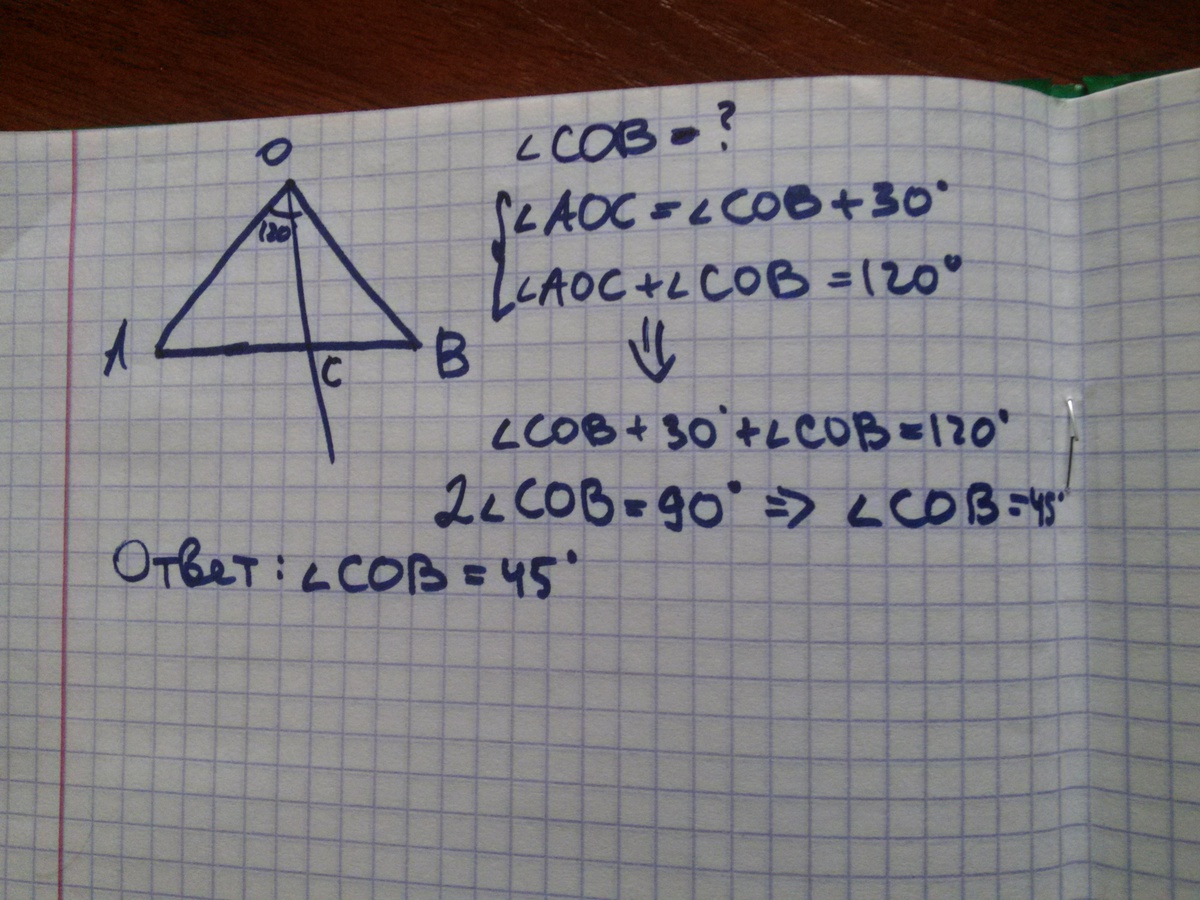 O
120
A
B
C
∠COB - ?
∠AOC = ∠COB + 30°
∠AOC + ∠COB = 120°
⇓
∠COB + 30° + ∠COB = 120°
2∠COB = 90° => ∠COB = 45°
Ответ: ∠COB = 45°